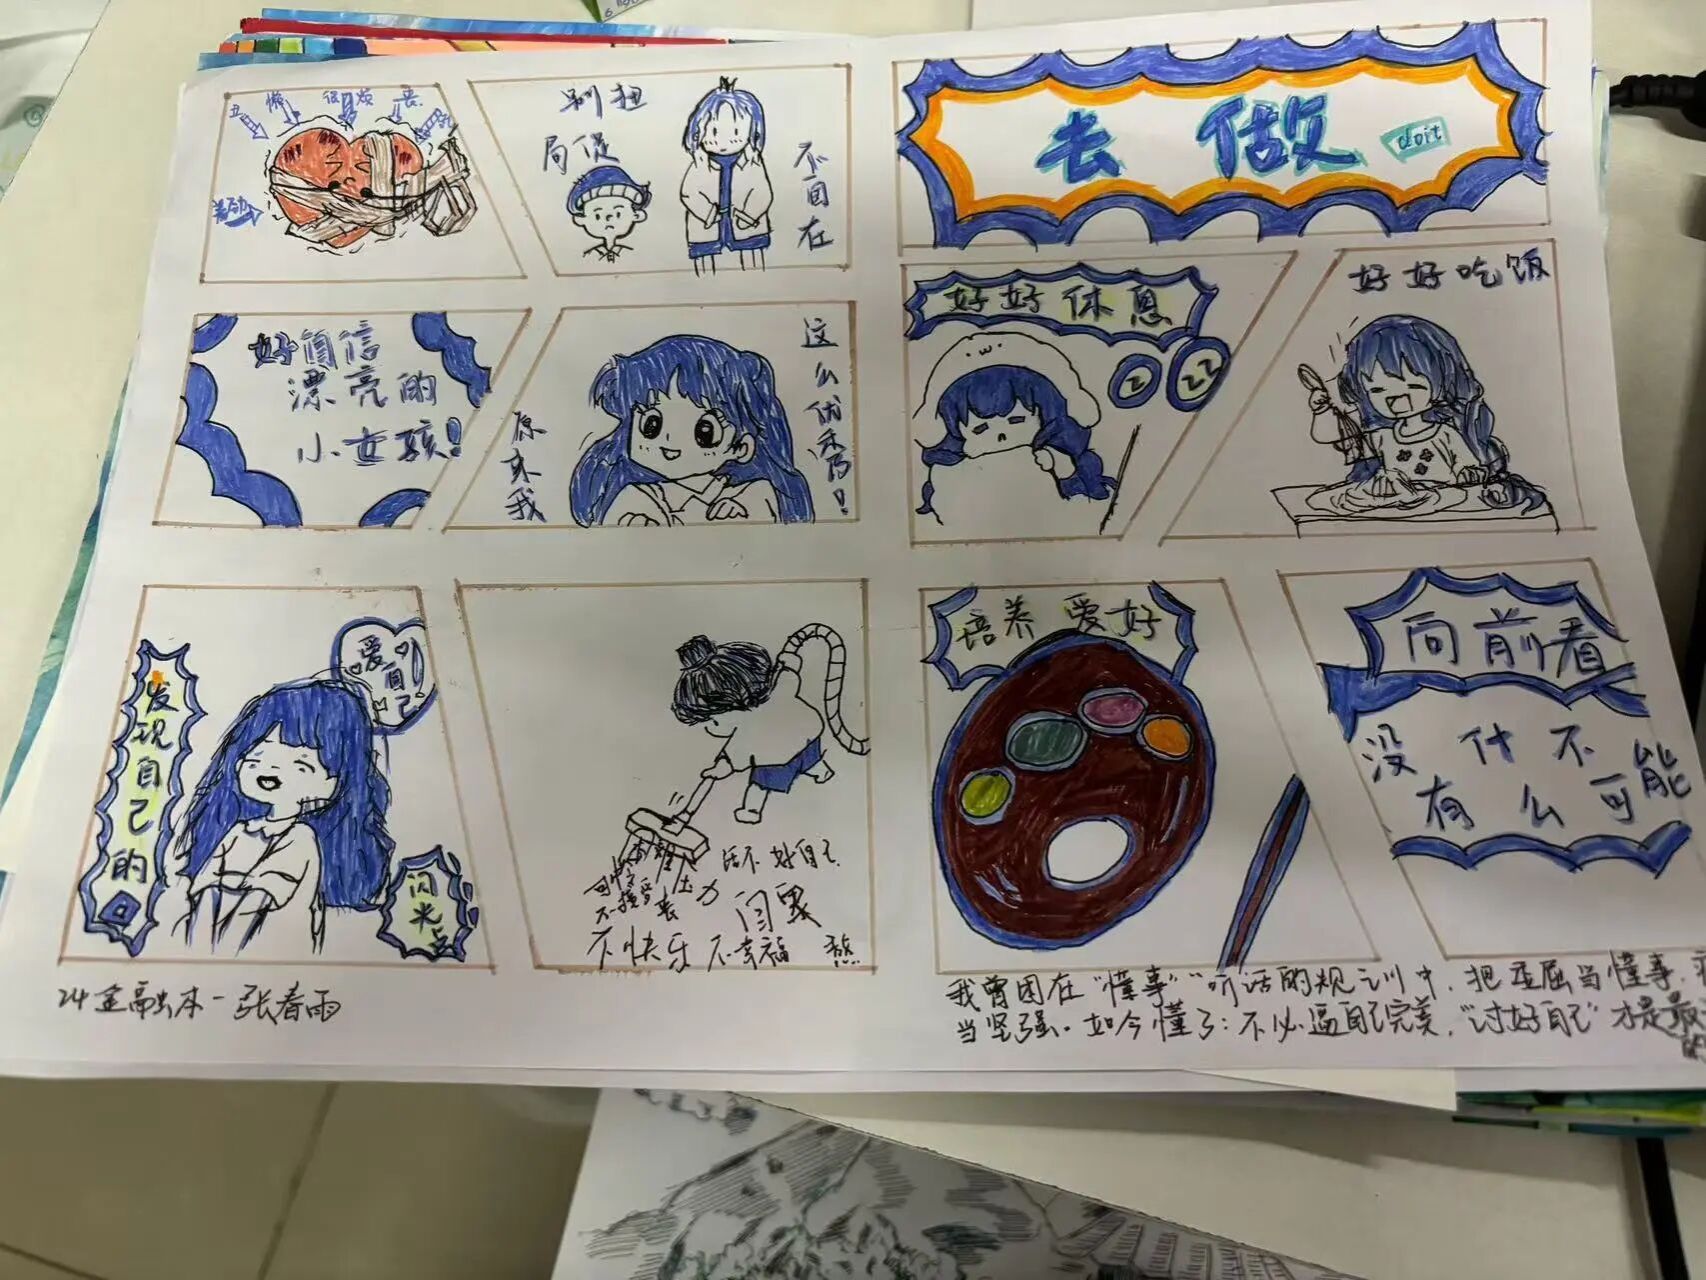 懒
很烦
丧
别扭
局促
不自在
好自信
漂亮的
小女孩!
原来我
这么优秀!
发现自己的
爱自己
闪光点
活不好自己
不接受
压力
丧
闫累
不快乐 不幸福 愁
24金融本一张春雨
去做 doit
好好休息
z zz
好好吃饭
培养爱好
向前看
没有什么不可能
我曾困在“懂事”“听话的规训中,把委屈当懂事,
当坚强。如今懂了:不必逼自己完美,“讨好自己”才是最
的